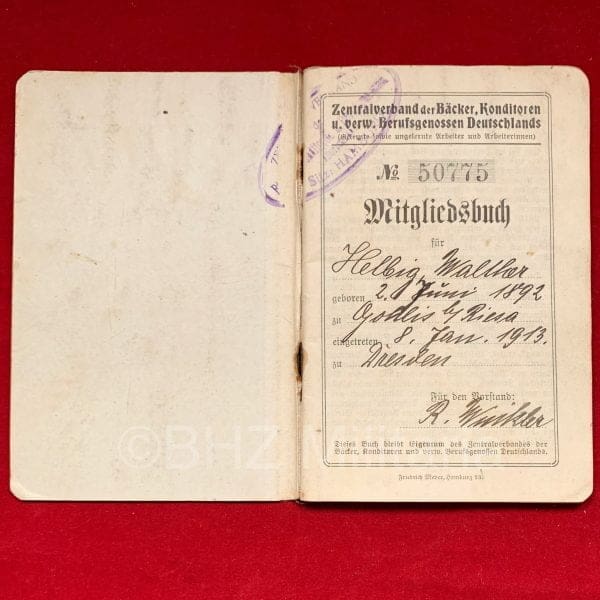 Zentralverband der Bäcker, Konditoren
u. verw. Berufsgenossen Deutschlands
(Gelernte sowie ungelernte Arbeiter und Arbeiterinnen)
No 50775
Mitgliedsbuch
für
Helbig, Walther
geboren 2. Juni 1892
zu Gohlis b/ Riesa
eingetreten 8. Jan. 1913.
zu Dresden
Für den Vorstand:
R. Winkler
Dieses Buch bleibt Eigentum des Zentralverbandes der
Bäcker, Konditoren und verw. Berufsgenossen Deutschlands.
Friedrich Meyer, Hamburg
©BHZ